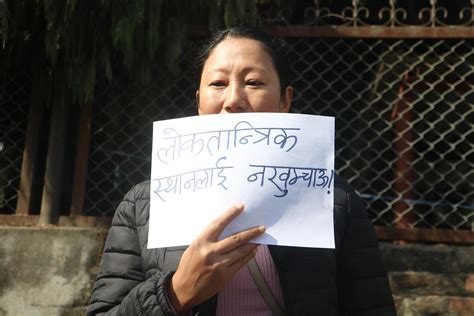 लोकतान्त्रिक
स्थानलाई नखुम्चाऊ!